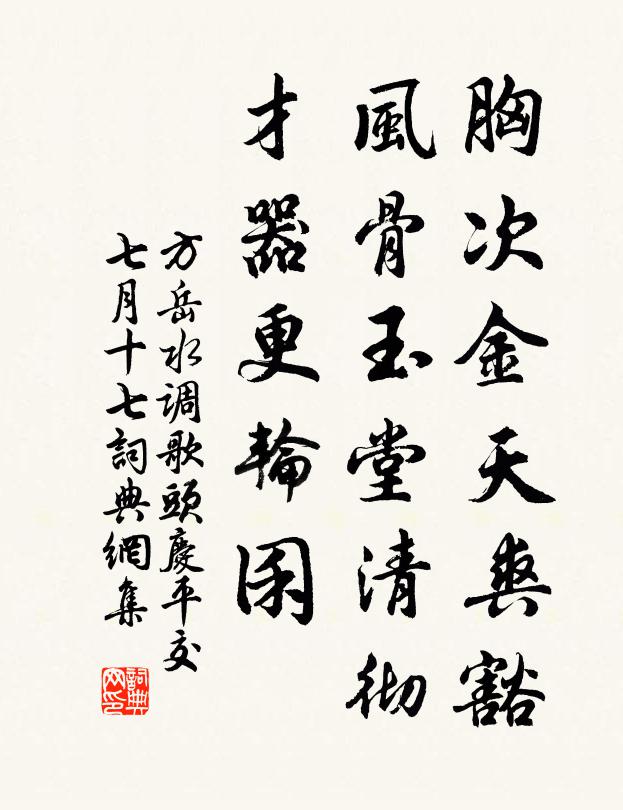 胸次金天爽豁
風骨玉堂清彻
才器更輪囷
方岳水调歌頭慶平交
七月十七詞典網集
詞典
网印